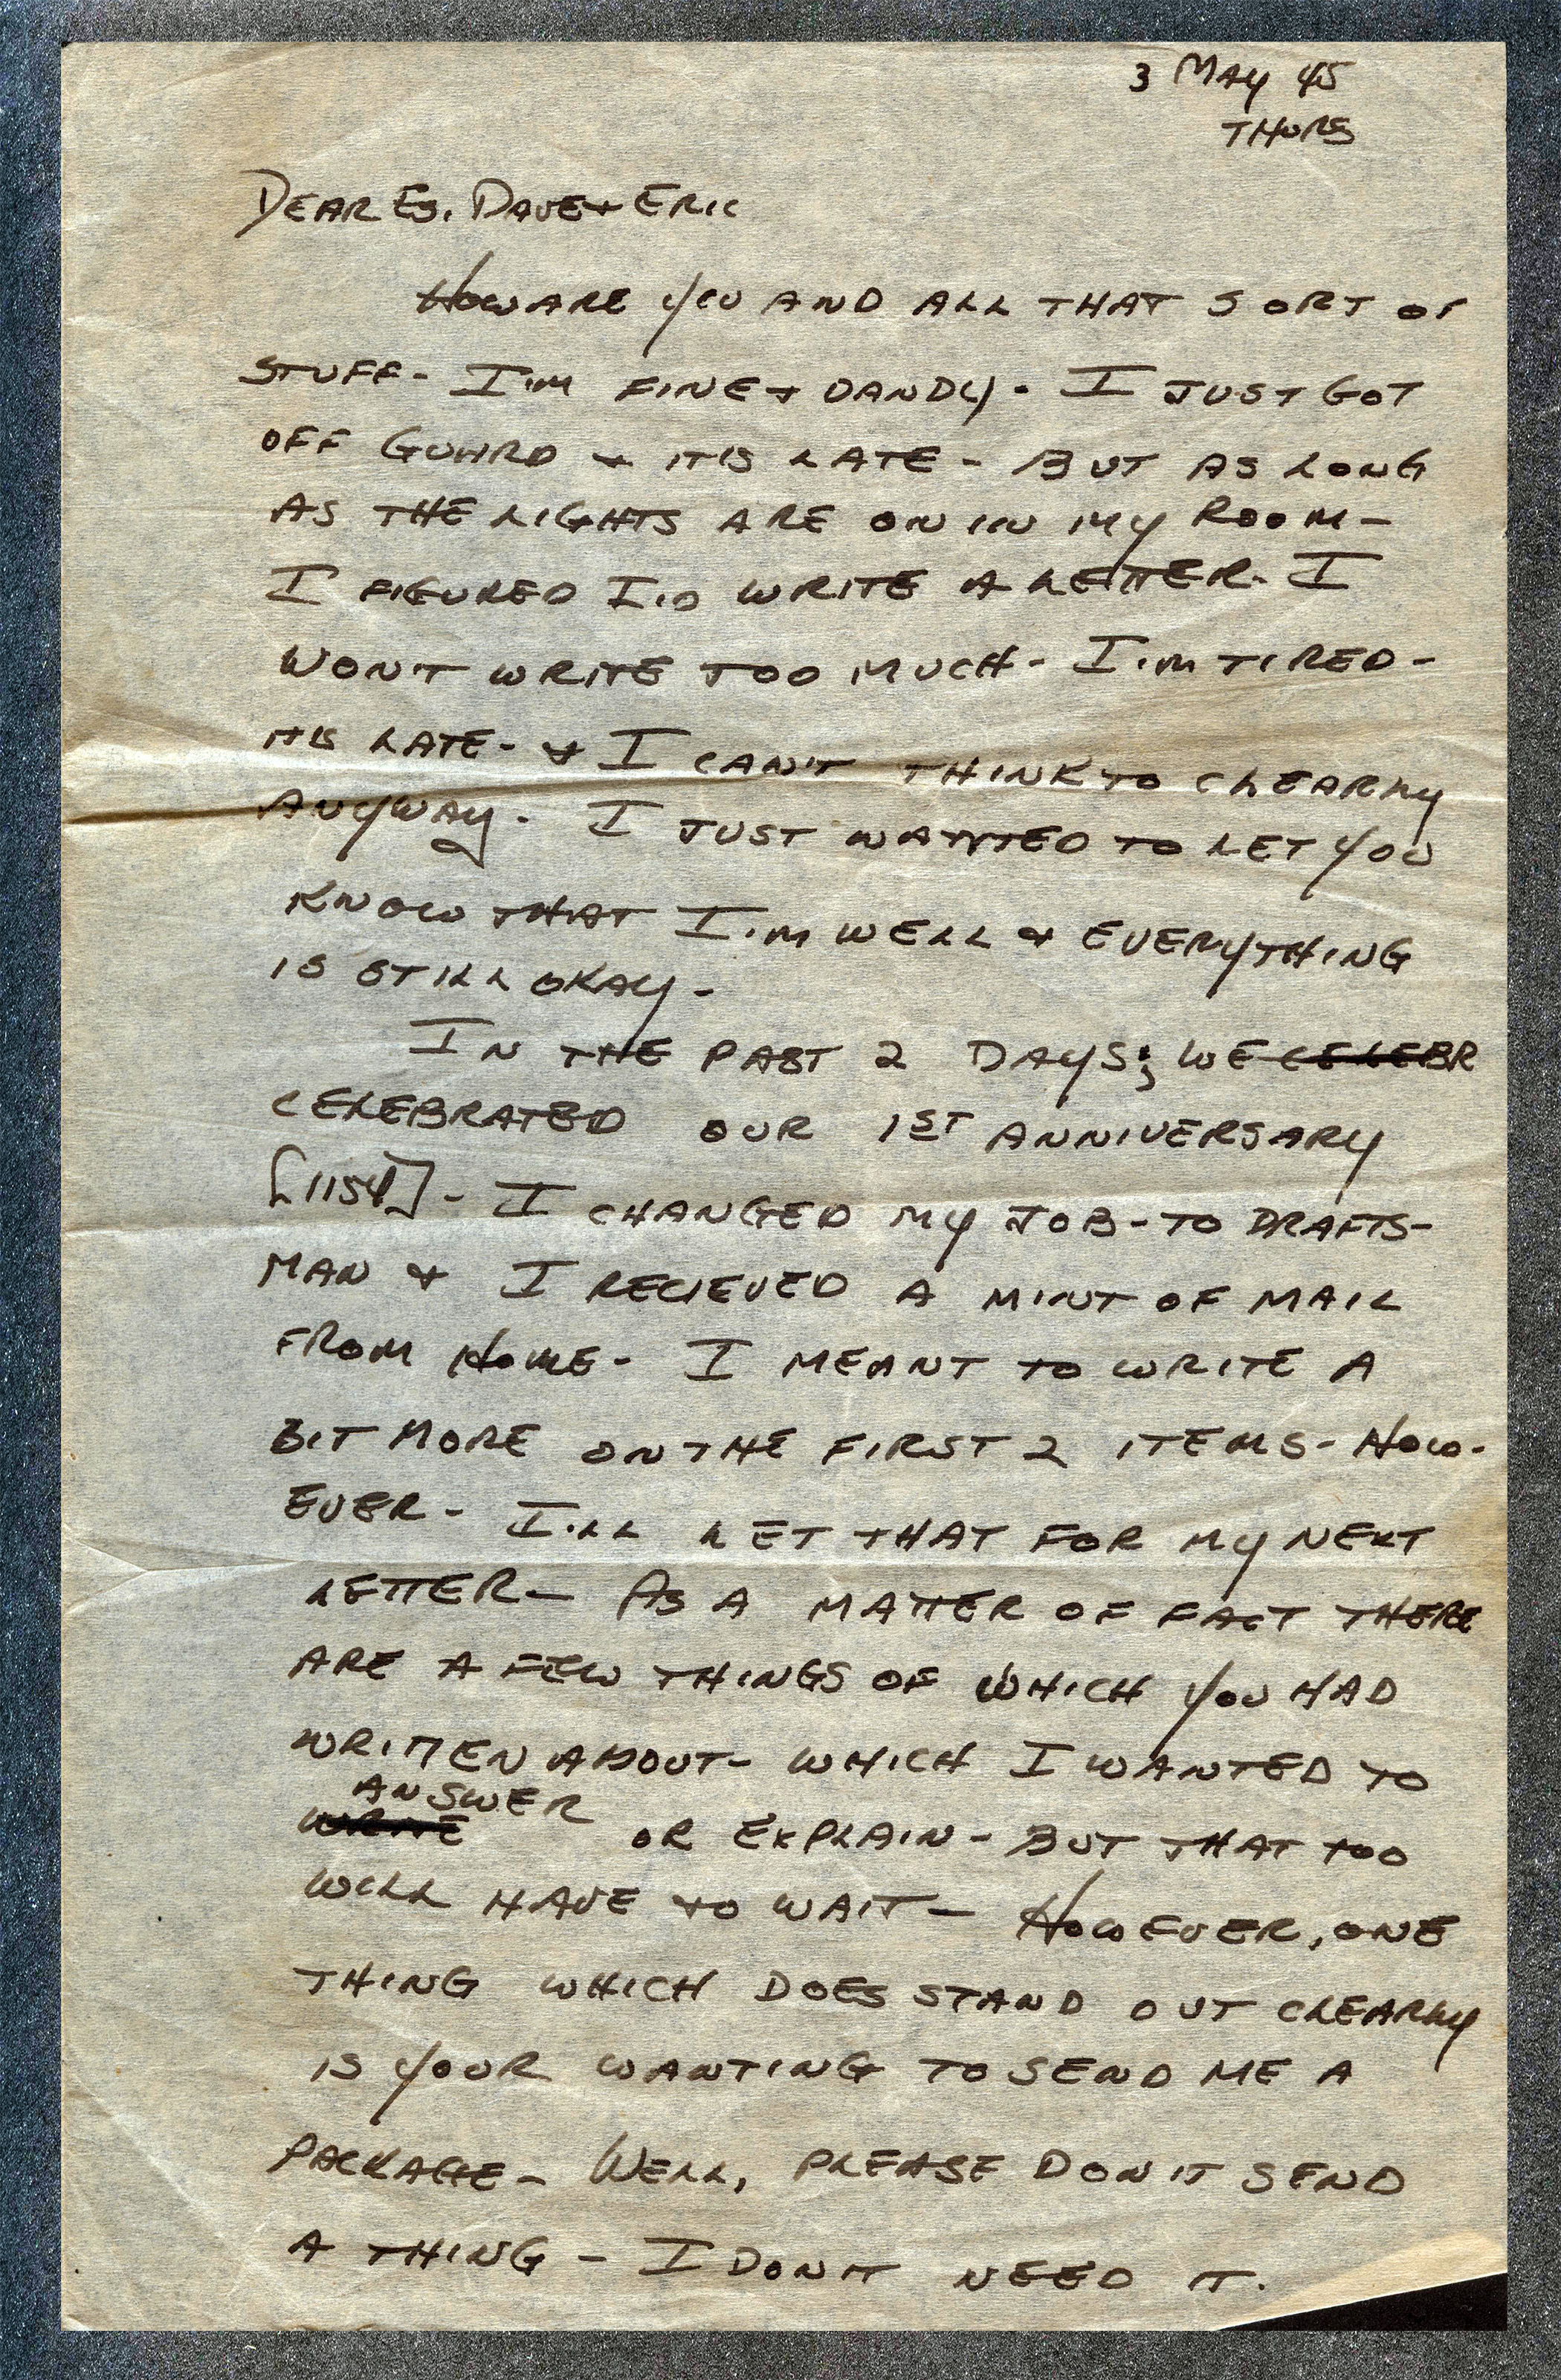 3 MAY 45
THURS
DEAR ES, DAVE + ERIC
HOW ARE YOU AND ALL THAT SORT OF
STUFF - I'M FINE + DANDY - I JUST GOT
OFF GUARD + IT'S LATE - BUT AS LONG
AS THE LIGHTS ARE ON IN MY ROOM -
I FIGURED I'D WRITE A LETTER. I
WON'T WRITE TOO MUCH - I'M TIRED -
IT'S LATE - + I CAN'T THINK TO CLEARLY
ANYWAY. I JUST WANTED TO LET YOU
KNOW THAT I'M WELL + EVERYTHING
IS STILL OKAY -
IN THE PAST 2 DAYS; WE CELEBR
CELEBRATED OUR 1ST ANNIVERSARY
[1154] - I CHANGED MY JOB - TO DRAFTS-
MAN + I RECIEVED A MINT OF MAIL
FROM HOME - I MEANT TO WRITE A
BIT MORE ON THE FIRST 2 ITEMS - HOW-
EVER - I'LL LET THAT FOR MY NEXT
LETTER - AS A MATTER OF FACT THERE
ARE A FEW THINGS OF WHICH YOU HAD
WRITTEN ABOUT - WHICH I WANTED TO
ANSWER
WRITE OR EXPLAIN - BUT THAT TOO
WILL HAVE TO WAIT - HOWEVER, ONE
THING WHICH DOES STAND OUT CLEARLY
IS YOUR WANTING TO SEND ME A
PACKAGE - WELL, PLEASE DON'T SEND
A THING - I DON'T NEED IT.